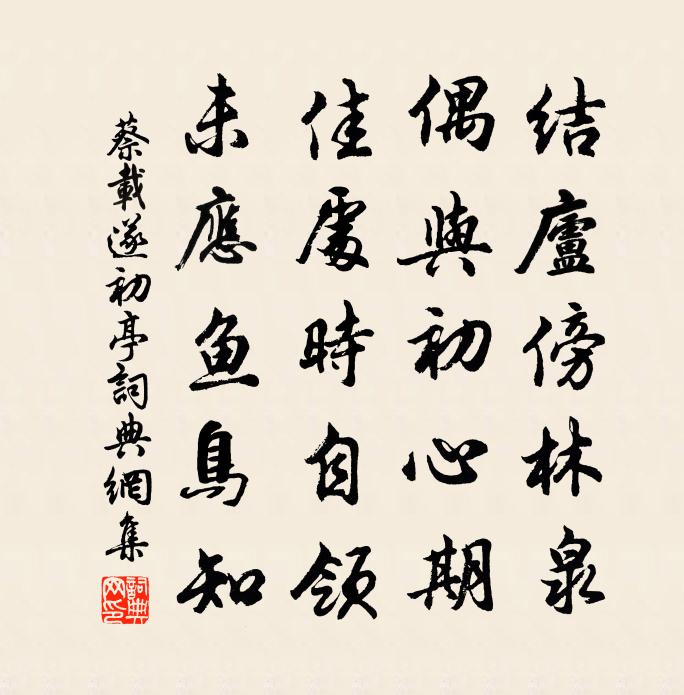 结廬傍林泉
偶與初心期
佳處時自領
未應鱼鳥知
蔡載遂初亭詞典網集
詞典網印